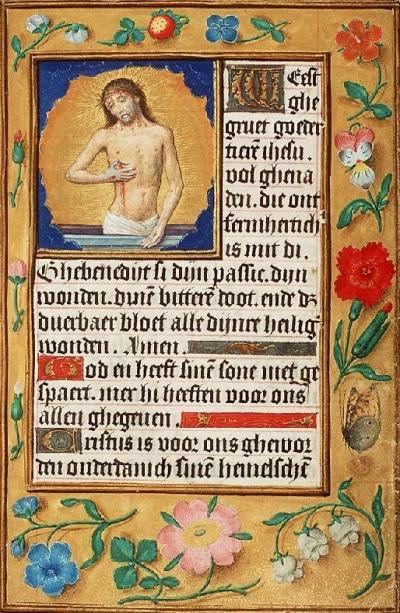 Weest
ghe
gruet goeder
tieren ihesu.
vol ghena
den. die ont
fermhertich
is mit di.
Ghebenedijt si dijn passie. dijn
wonden. dinē bitterē doot. ende dz
duerbaer bloet alle dijnre heilig
wonden. Amen.
God en heeft sinē sone niet ge
spaert. mer hi heeften voor ons
allen ghegeuen.
Cristus is voor ons ghewor
den onderdanich sinē hemelschē